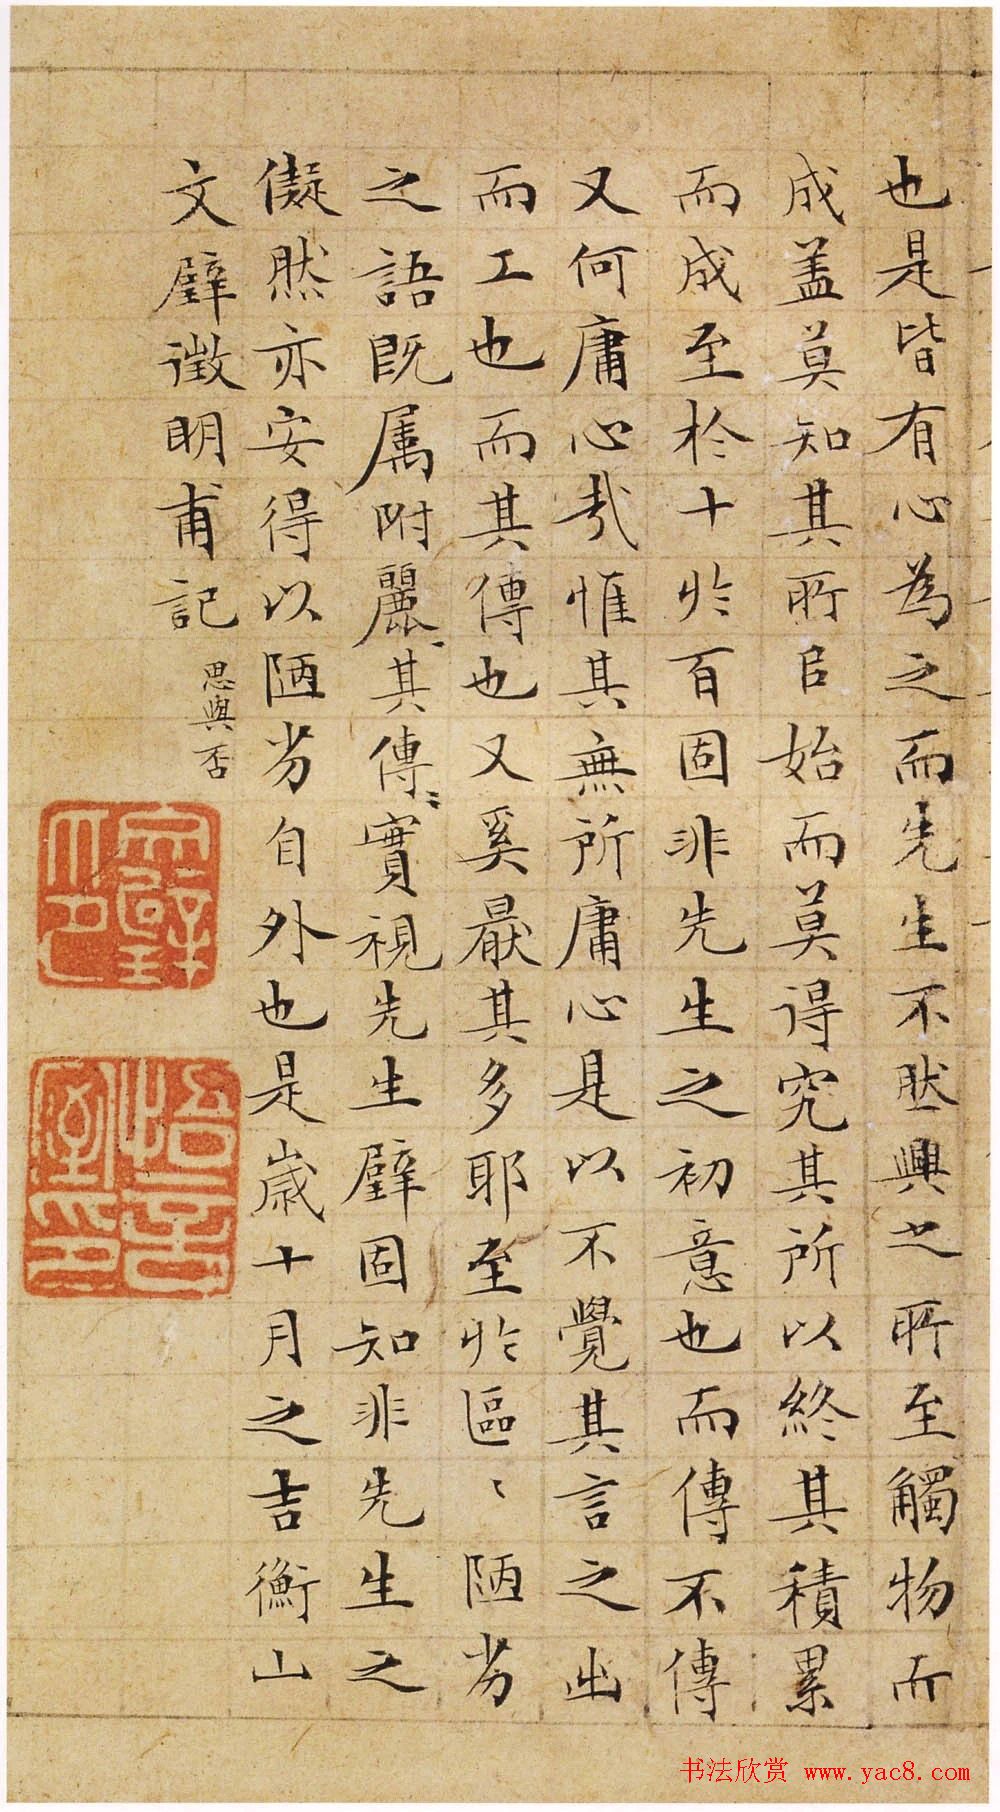 也是皆有心為之而先生不然興之所至觸物而
成蓋莫知其所自始而莫得究其所以終其積累
而成至於十於百固非先生之初意也而傳不傳
又何庸心哉惟其無所庸心是以不覺其言之出
而工也而其傳也又奚厭其多耶至於區〻陋劣
之語既属附麗〻其傳〻實視先生璧固知非先生之
儗然亦安得以陋劣自外也是歲十月之吉衡山
文璧徵明甫記 思與否
文璧
悟言室印
书法欣赏 www.yac8.com